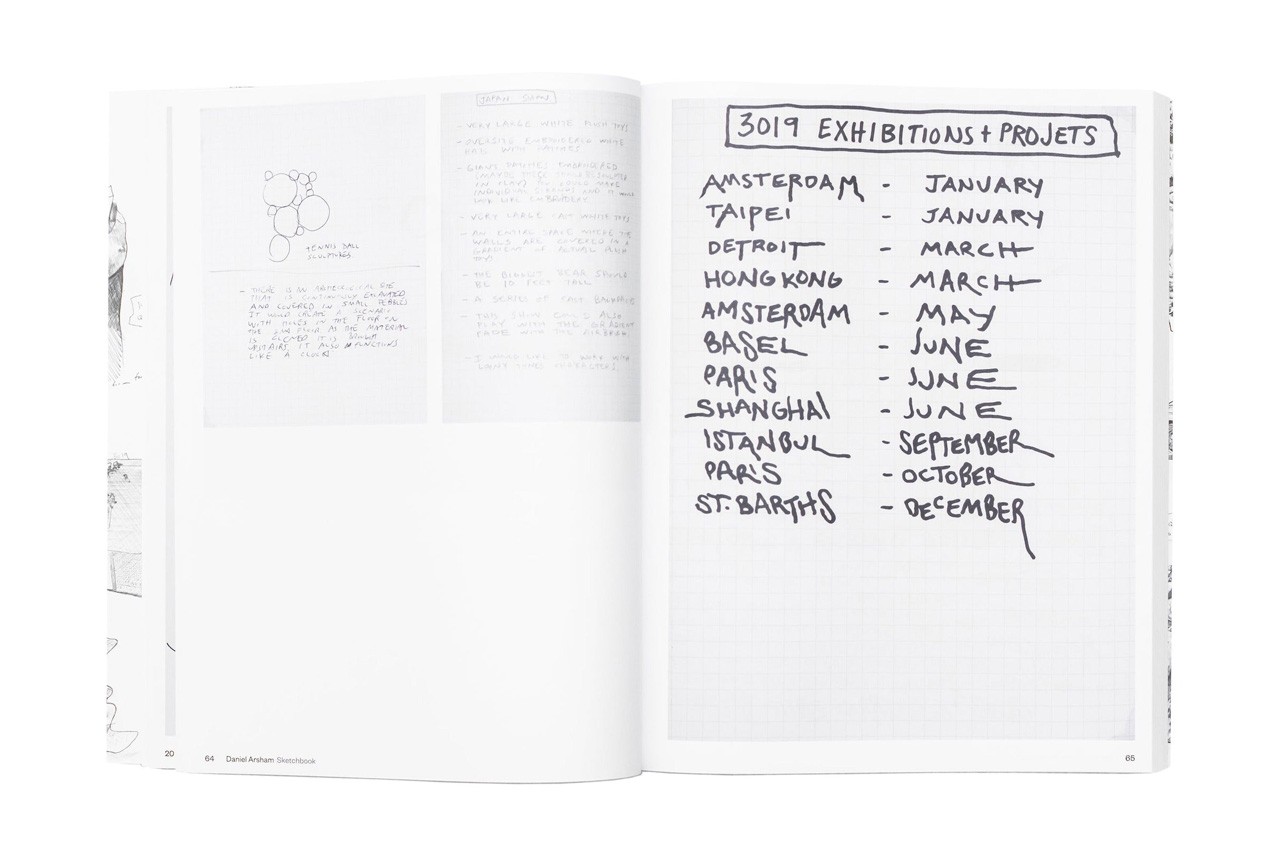 TENNIS BALL
SCULPTURES.
- THERE IS AN
THAT IS CONTINUOUSLY EXCAVATED
AND COVERED IN SMALL PEBBLES
IT WOULD CREATE A SCENARIO
WITH HOLES IN THE FLOOR
THE FLOOR AS THE MATERIAL
IS CLEANED IT IS BROUGHT
UPSTAIRS. IT ALSO FUNCTIONS
LIKE A CLOCK
JAPAN SHOW
- VERY LARGE WHITE PLUSH TOYS
- OVERSIZE EMBROIDERED WHITE
WITH PATCHES
- GIANT PATCHES EMBROIDERED
(MAYBE THESE COULD
INDIVIDUAL AND IT
LOOK LIKE EMBROIDERY.
- VERY LARGE CAST WHITE TOYS
- AN ENTIRE SPACE WHERE THE
WALLS ARE COVERED IN A
GRADIENT OF ACTUAL PLUSH
TOYS
- THE BIGGEST BEAR SHOULD
BE 10 FEET TALL
- A SERIES OF CAST
- THIS SHOW COULD ALSO
PLAY WITH THE GRADIENT
FADE WITH THE AIRBRUSH.
- I WOULD LIKE TO WORK WITH
CHARACTERS.
20
64 Daniel Arsham Sketchbook
3019 EXHIBITIONS + PROJETS
AMSTERDAM - JANUARY
TAIPEI - JANUARY
DETROIT - MARCH
HONG KONG - MARCH
AMSTERDAM - MAY
BASEL - JUNE
PARIS - JUNE
SHANGHAI - JUNE
ISTANBUL - SEPTEMBER
PARIS - OCTOBER
ST. BARTHS - DECEMBER
65